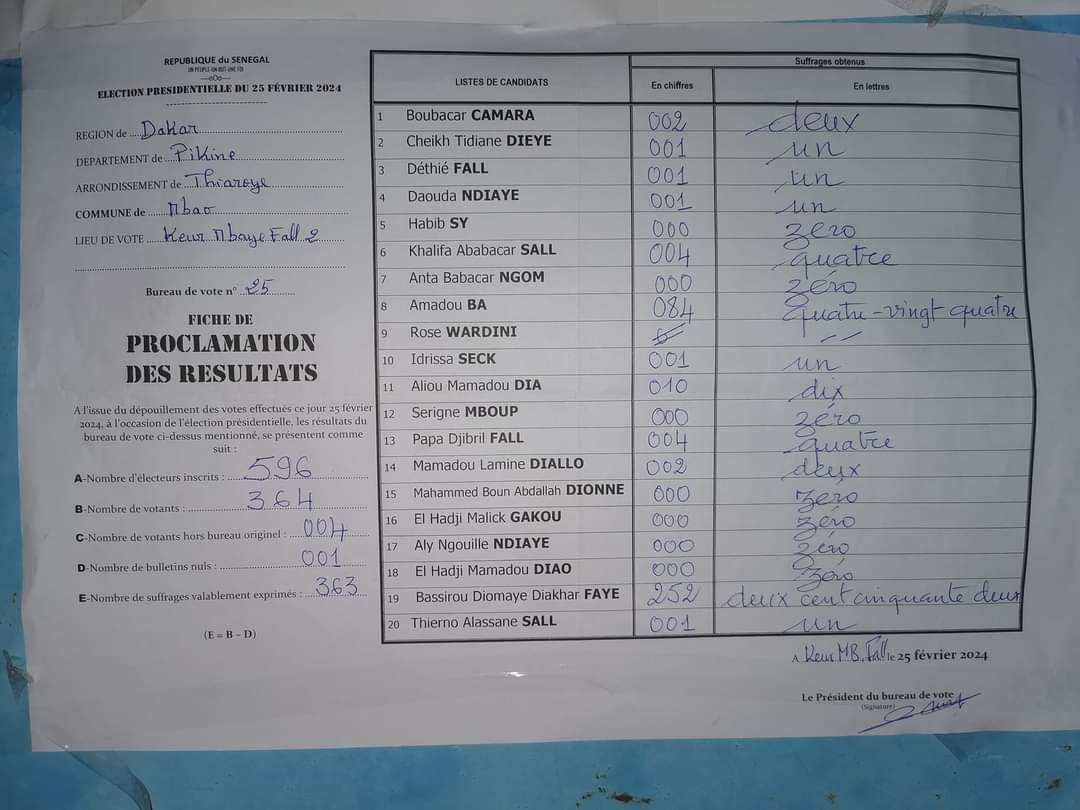 REPUBLIQUE du SENEGAL
UN PEUPLE-UN-BUT-UNE FOI
—oOo—
ELECTION PRESIDENTIELLE DU 25 FÉVRIER 2024
REGION de Dakar
DEPARTEMENT de Pikine
ARRONDISSEMENT de Thiaroye
COMMUNE de Mbao
LIEU DE VOTE Keur Mbaye Fall 2
Bureau de vote n° 25
FICHE DE
PROCLAMATION
DES RESULTATS
A l'issue du dépouillement des votes effectués ce jour 25 février
2024, à l'occasion de l'élection présidentielle, les résultats du
bureau de vote ci-dessus mentionné, se présentent comme
suit :
A-Nombre d'électeurs inscrits : 596
B-Nombre de votants : 364
C-Nombre de votants hors bureau originel : 004
D-Nombre de bulletins nuls : 001
E-Nombre de suffrages valablement exprimes : 363
(E = B – D)
LISTES DE CANDIDATS
Suffrages obtenus
En chiffres
En lettres
1 Boubacar CAMARA 002 deux
2 Cheikh Tidiane DIEYE 001 un
3 Déthié FALL 001 un
4 Daouda NDIAYE 001 un
5 Habib SY 000 zéro
6 Khalifa Ababacar SALL 004 quatre
7 Anta Babacar NGOM 000 zéro
8 Amadou BA 084 quatre-vingt quatre
9 Rose WARDINI
10 Idrissa SECK 001 un
11 Aliou Mamadou DIA 010 dix
12 Serigne MBOUP 000 zéro
13 Papa Djibril FALL 004 quatre
14 Mamadou Lamine DIALLO 002 deux
15 Mahammed Boun Abdallah DIONNE 000 zéro
16 El Hadji Malick GAKOU 000 zéro
17 Aly Ngouille NDIAYE 000 zéro
18 El Hadji Mamadou DIAO 000 zéro
19 Bassirou Diomaye Diakhar FAYE 252 deux cent cinquante deux
20 Thierno Alassane SALL 001 un
A Keur MB. Fall le 25 février 2024
Le Président du bureau de vote
(Signature)